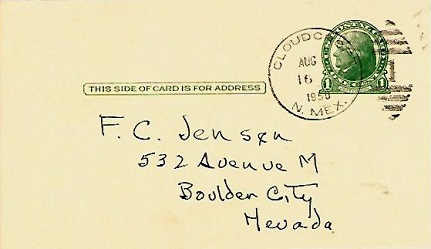 CLOUDC
AUG
16
1950
N. MEX.
THIS SIDE OF CARD IS FOR ADDRESS
F. C. Jensen
532 Avenue M
Boulder City
Nevada